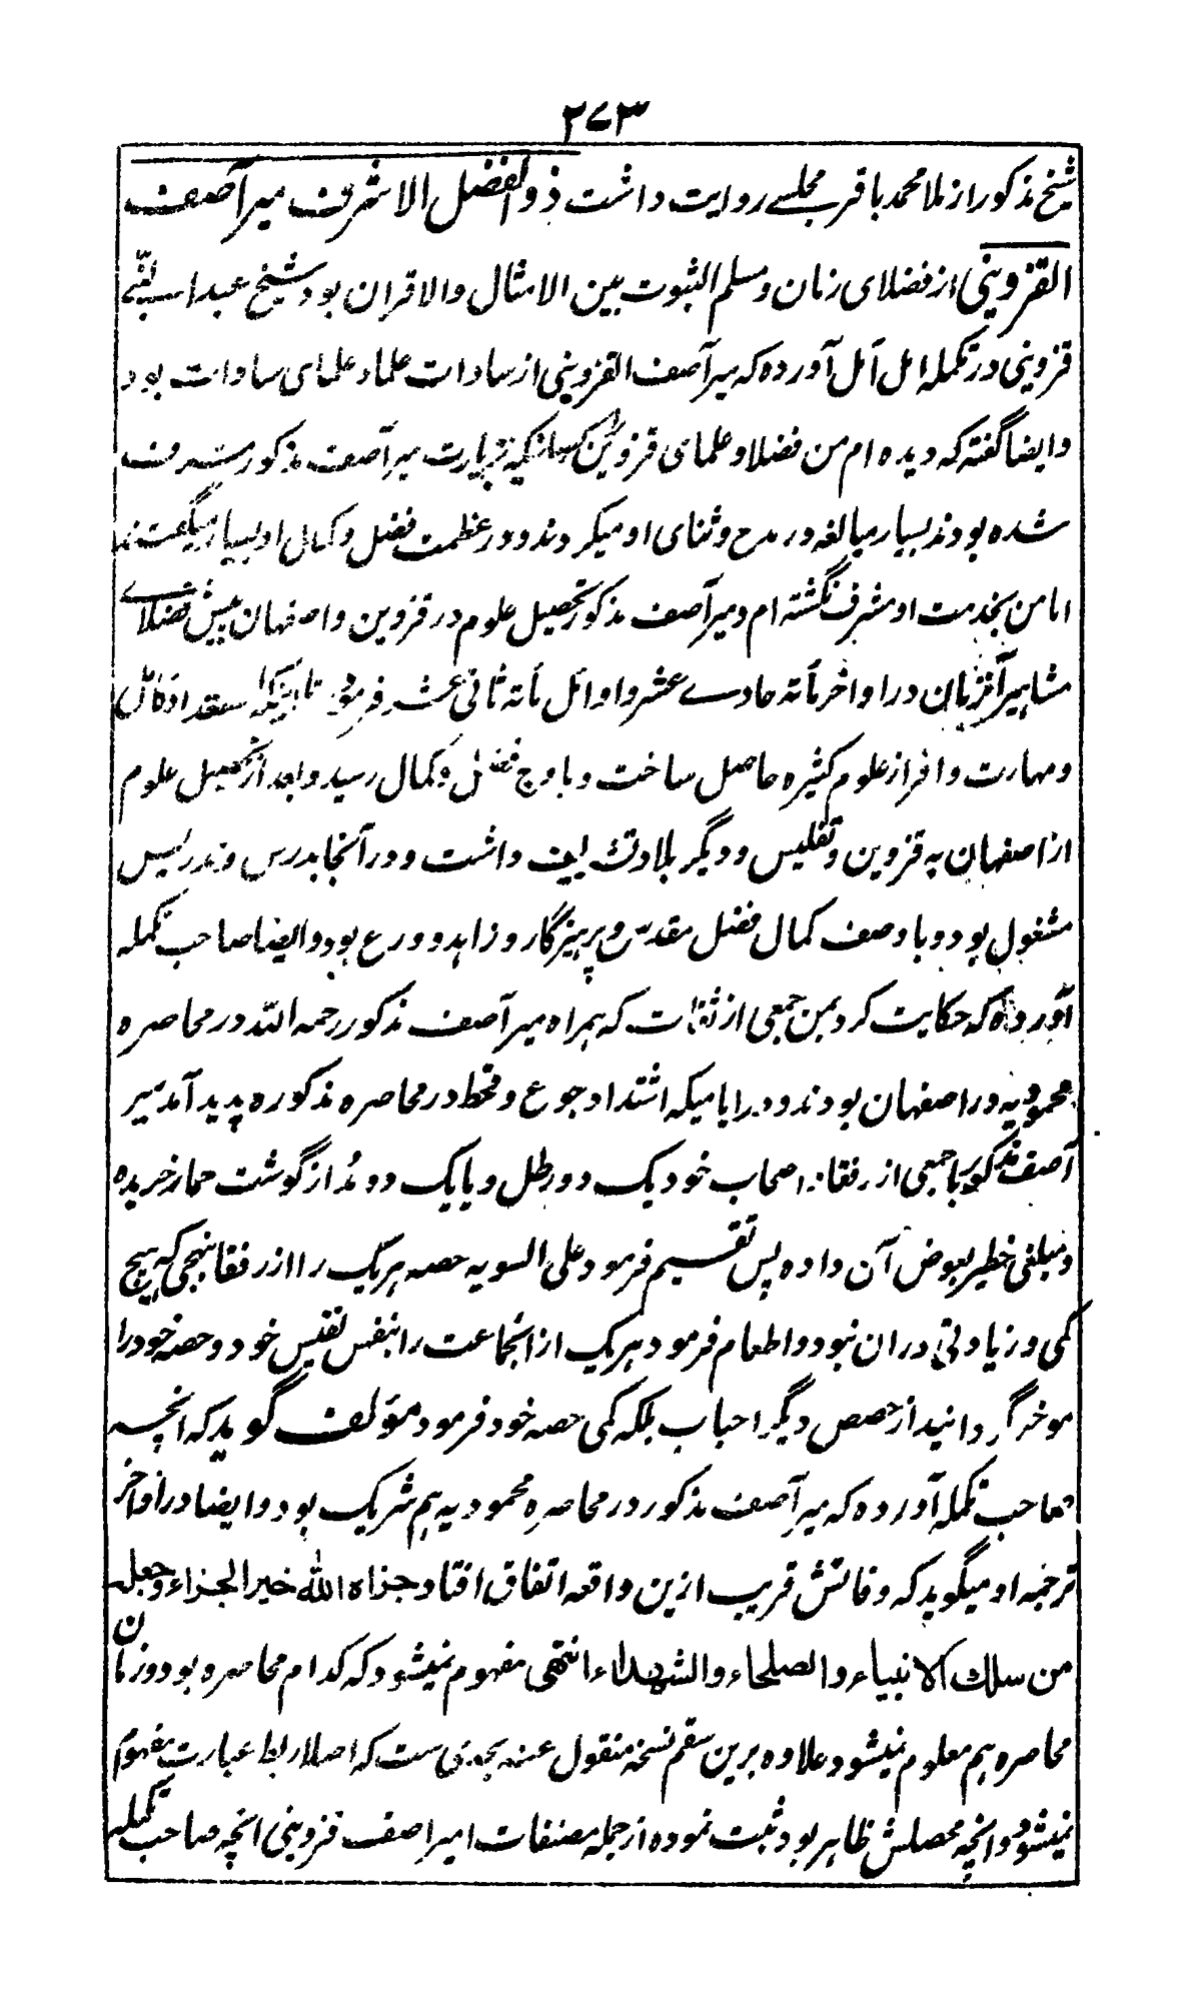 ۲۷۳
شیخ مذکور از ملا محمد باقر مجلسے روایت داشت ذو الفضل الاشرف میر آصف
القزوینی از فضلای زمان و مسلم الثبوت بین الامثال والاقران بود شیخ عبدالنبی
قزوینی در تکملہ امل آمل آوردہ کہ میر آصف القزوینی از سادات علما و علمای سادات بود
و ایضا گفتہ کہ دیدہ ام من فضلا و علمای قزوین را کسانیکہ بزیارت میر آصف مذکور مشرف
شدہ بودند بسیار مبالغہ در مدح و ثنای او میکردند و در عظمت فضل و کمال او بسیار میگفتند
اما من بخدمت او مشرف نگشتہ ام و میر آصف مذکور تحصیل علوم در قزوین و اصفهان پیش فضلاے
مشاہیر آنزمان در اواخر مأتہ حادے عشر و اوائل مأتہ ثانی عشر فرمود تا اینکہ استعداد کامل
و مہارت وافر از علوم کثیرہ حاصل ساخت و باوج فضل و کمال رسید و بعد از تحصیل علوم
از اصفهان بہ قزوین و تفلیس و دیگر بلاد تشریف داشت و در آنجا بدرس و تدریس
مشغول بود و باوصف کمال فضل مقدس و پرہیزگار و زاہد و ورع بود و ایضا صاحب تکملہ
آوردہ کہ حکایت کرد بمن جمعی از ثقات کہ ہمراہ میر آصف مذکور رحمہ اللہ در محاصرہ
محمودیہ در اصفهان بودند و در ایامیکہ اشتداد جوع و قحط در محاصرہ مذکورہ پدید آمد میر
آصف مذکور با جمعی از رفقا و اصحاب خود یک دو رطل و یا یک دو مُد از گوشت حمار خریدہ
و مبلغی خطیر بعوض آن دادہ پس تقسیم فرمود علی السویہ حصہ ہریک را از رفقا بنہجی کہ ہیچ
کمی و زیادتی دران نبود و اطعام فرمود ہریک از انجماعت را بنفس نفیس خود و حصہ خود را
موخر گردانید از حصص دیگر احباب بلکہ کمی حصہ خود فرمود مؤلف گوید کہ انچہ
صاحب تکملہ آوردہ کہ میر آصف مذکور در محاصرہ محمودیہ ہم شریک بود و ایضا در اواخر
ترجمہ او میگوید کہ وفاتش قریب ازین واقعہ اتفاق افتاد جزاہ اللہ خیر الجزاء و جعلہ
من سلاک الانبیاء والصلحاء والشہداء انتہی مفہوم نمیشود کہ کدام محاصرہ بود و زمان
محاصرہ ہم معلوم نمیشود علاوہ برین سقم نسخہ منقول عنہ بحدی ست کہ اصلا ربط عبارت مفہوم
نمیشود و انچہ محصلش ظاہر بود ثبت نمودہ از جملہ مصنفات امیر اصف قزوینی انچہ صاحب تکملہ